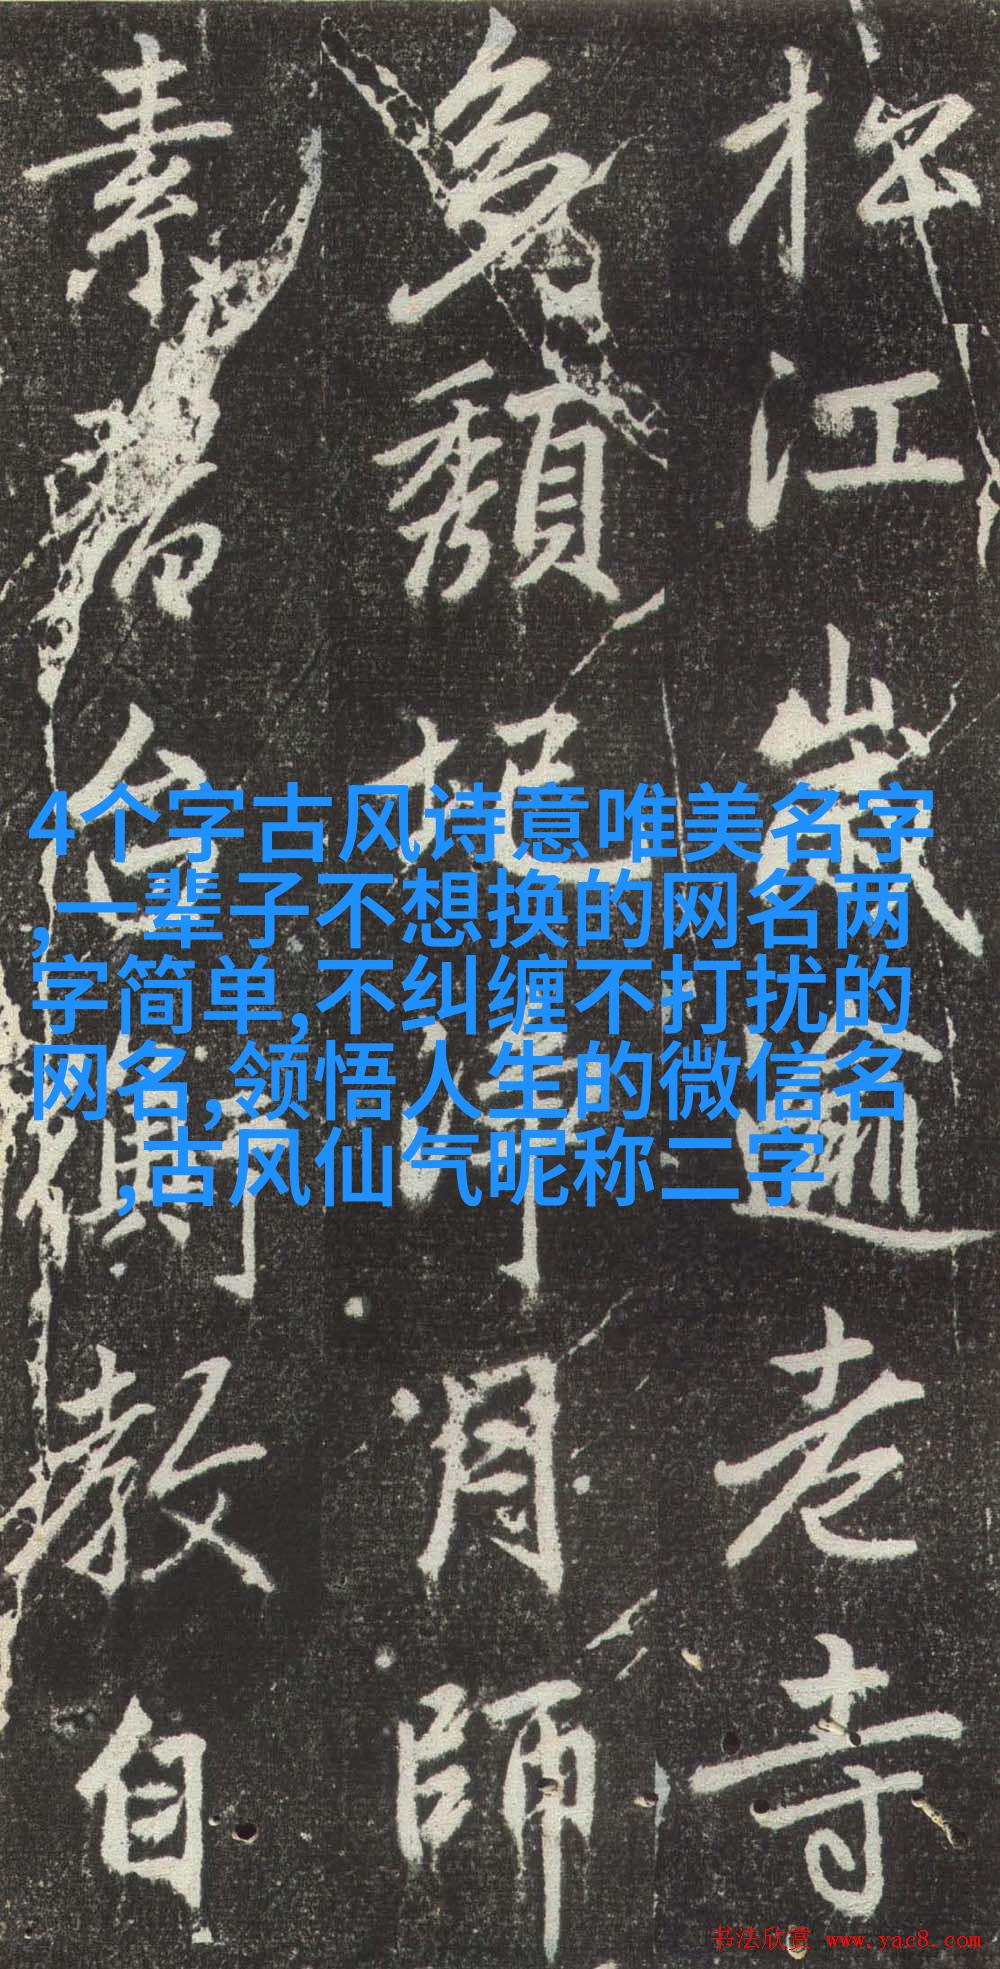 江歲邇老寺
頹圯月師
素著教自
4个字古风诗意唯美名字
,一辈子不想换的网名两
字简单,不纠缠不打扰的
网名,领悟人生的微信名
,古风仙气昵称二字
书法欣赏 www.yac8.com